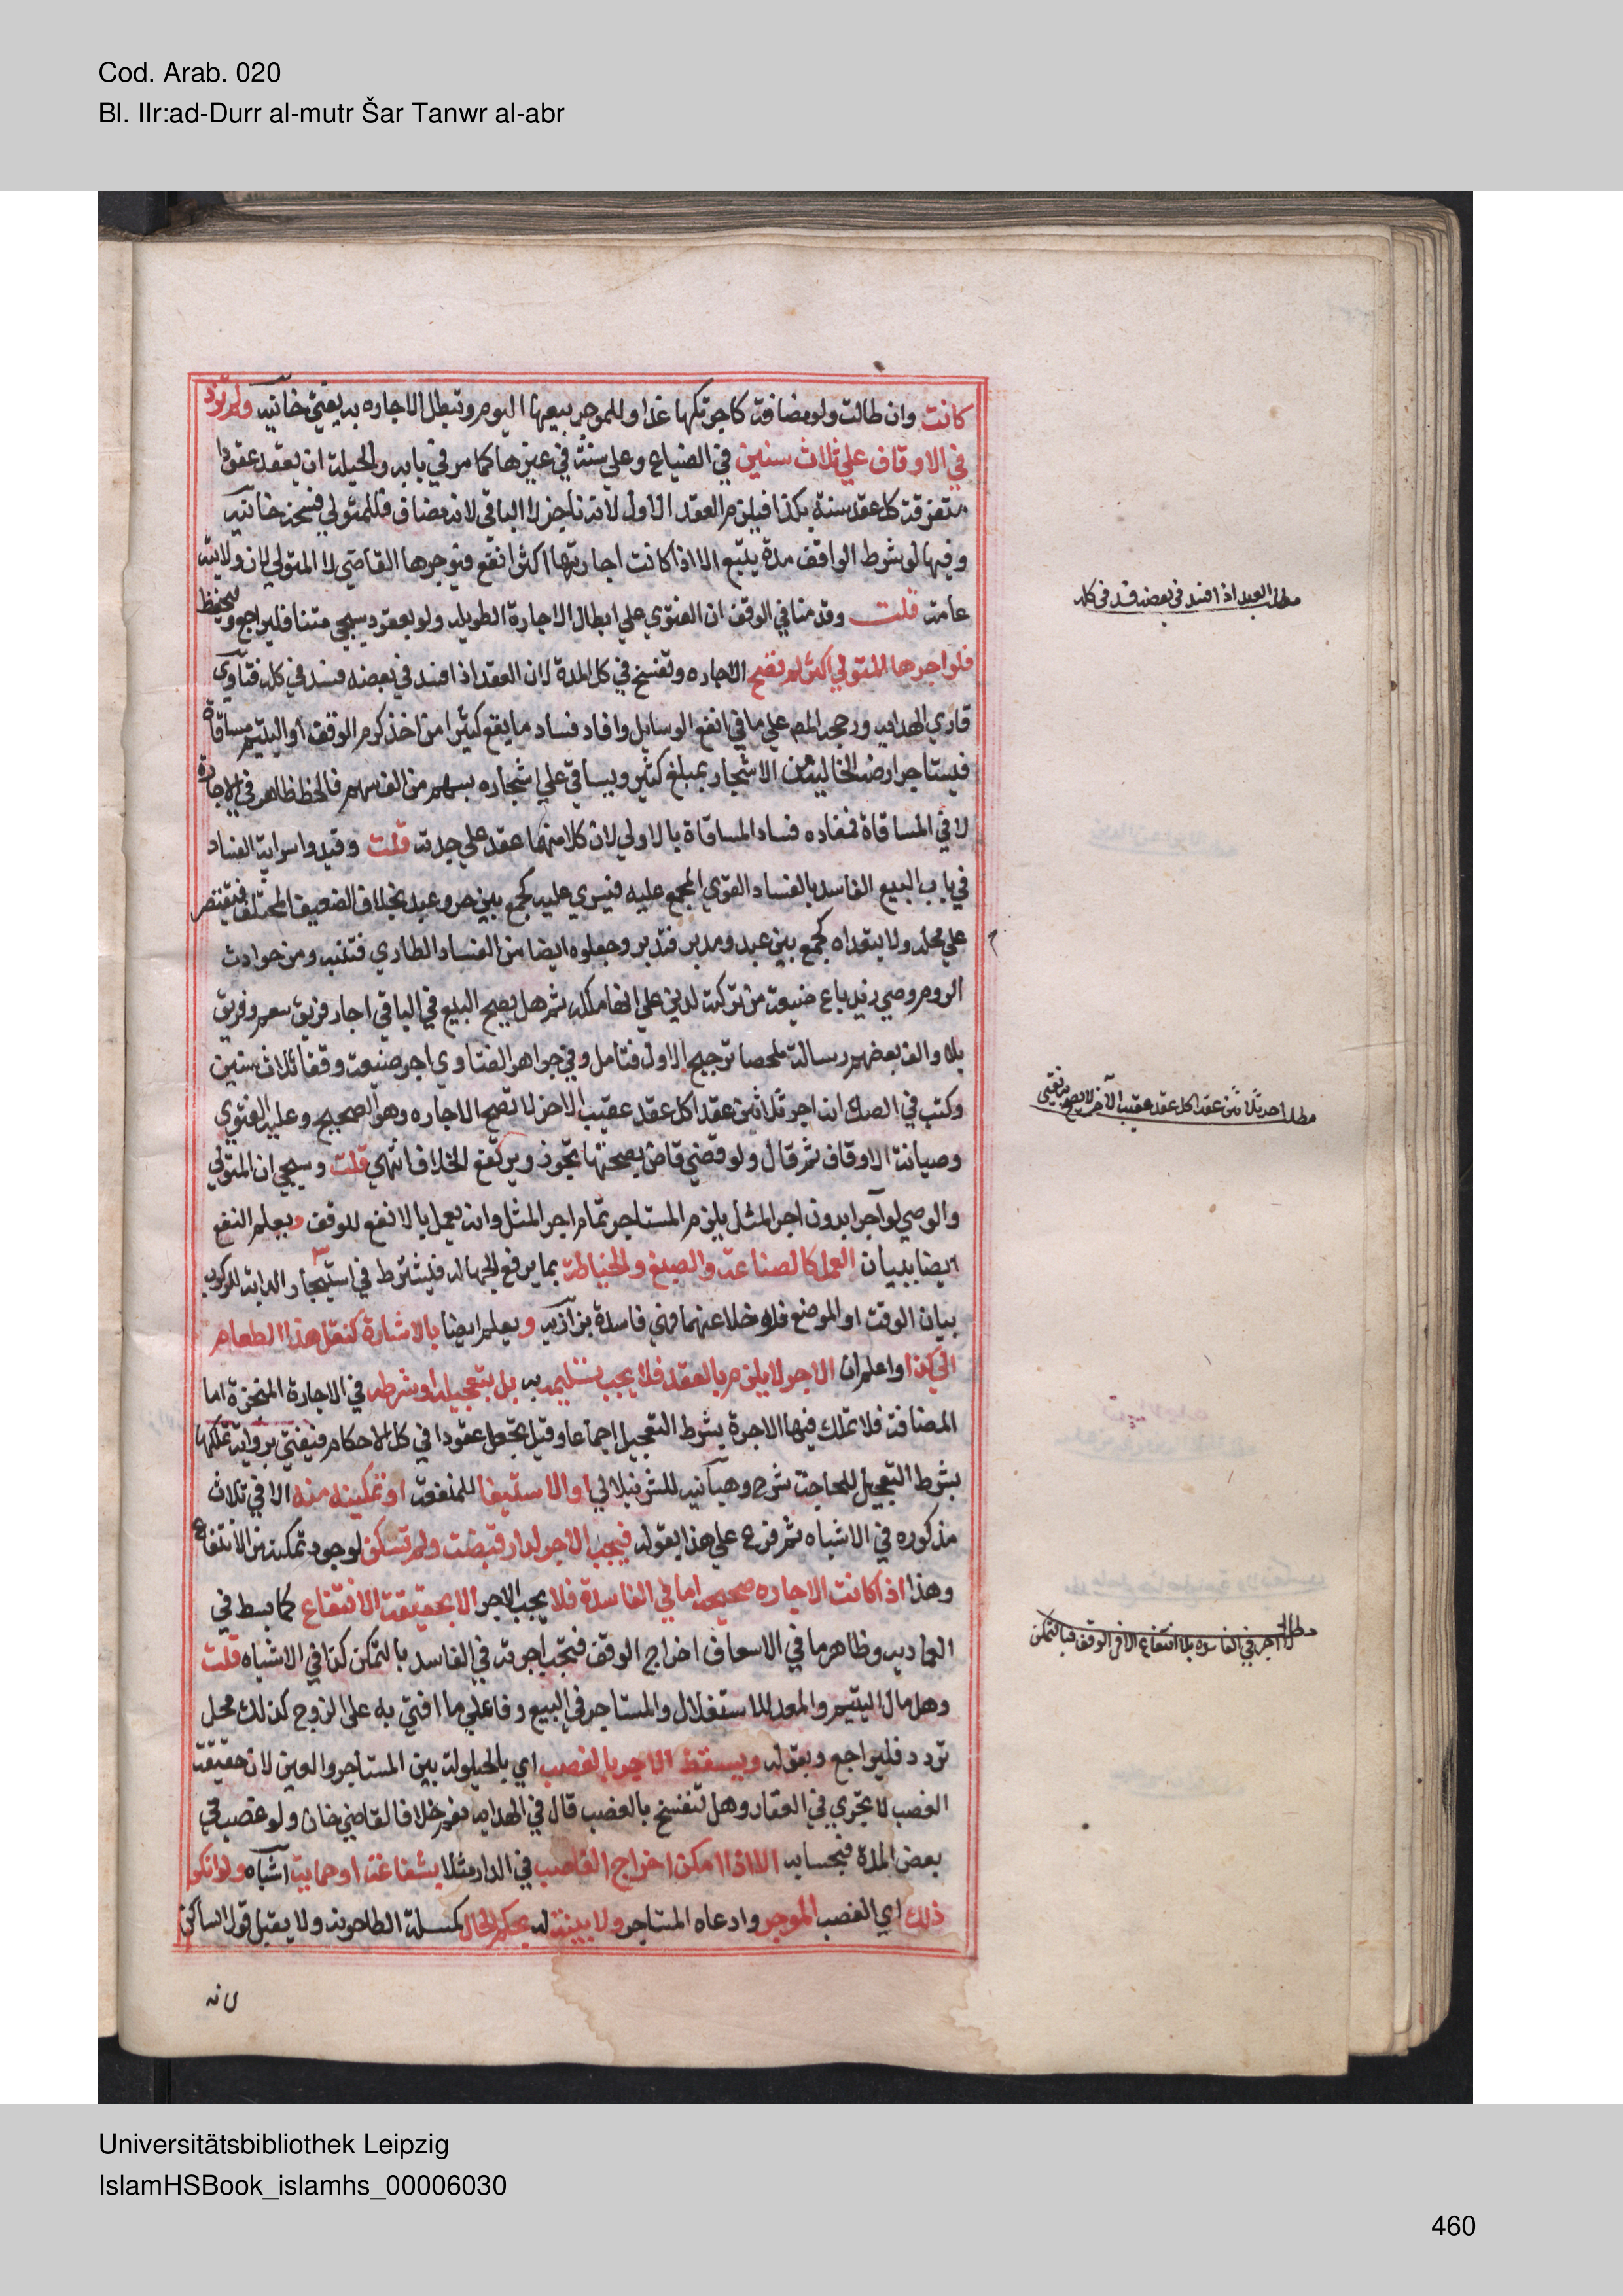 Cod. Arab. 020
Bl. IIr:ad-Durr al-mutr Šar Tanwr al-abr
كانت وان طالت ولو مضافة كاجرتكها غدا وللموجر بيعها اليوم وتبطل الاجاره به يفتي خانيه ولم تزد
في الاوقاف علي ثلاث سنين في الضياع وعلي سنة في غيرها كما مر في بابه والحيلة ان يعقد عقودا
متفرقة كل عقد سنة بكذا فيلزم العقد الاول لانه ناجز لا الباقي لانه مضاف فللمتولي فسخه خانيه
وفيها لو شرط الواقف مدة يتبع الا اذا كانت اجارتها اكثر انفع فيوجرها القاضي لا المتولي لان ولايته
عامة قلت وقدمنا في الوقف ان الفتوي علي ابطال الاجارة الطويله ولو بعقود سيجي متنا فليراجع وليحفظ
فلو اجرها المتولي اكثر لم تصح الاجاره وتفسخ في كل المدة لان العقد اذا افسد في بعضه فسد في كله فتاوي
قاري الهدايه ورجحه المص علي ما في انفع الوسايل وافاد فساد ما يقع كثيرا من اخذ كرم الوقف او اليتيم مساقاة
فيستاجر ارضه الخالية من الاشجار بمبلغ كثير ويساقي علي اشجاره بسهم من الف سهم فالحظ ظاهر في الاجارة
لا في المساقاة فمفاده فساد المساقاة بالاولي لان كلا منهما عقد علي حدته قلت وقيدوا سراية الفساد
في باب البيع الفاسد بالفساد القوي المجمع عليه فيسري عليه كجمع بين حر وعبد بخلاف الضعيف المختلف فيقتصر
علي محله ولا يتعداه كجمع بين عبد ومدبر فتدبر وجعلوه ايضا من الفساد الطاري فتنبه ومن حوادث
الروم وصي زيد باع ضيعة من تركته لدين علي انها ملكه ثم هل يصح البيع في الباقي اجاز فريق بنعم وفريق
بلا والف بعضهم رسالة ملخصا ترجيح الاول فتامل وفي جواهر الفتاوي اجر ضيعة وقفا ثلاث سنين
وكتب في الصك انه اجر ثلاثين عقدا كل عقد عقيب الاخر لا تصح الاجاره وهو الصحيح وعليه الفتوي
وصيانة الاوقاف ثم قال ولو قضي قاض بصحتها تجوز ويرتفع الخلاف انتهي قلت وسيجي ان المتولي
والوصي لو آجرا بدون اجر المثل يلزم المستاجر تمام اجر المثل وانه يعمل بالانفع للوقف ويعلم النفع
ايضا ببيان العمل كالصناعة والصبغ والخياطة بما يرفع الجهالة فيشترط في استيجار الدابة للركوب
بيان الوقت او الموضع فلو خلا عنهما فهي فاسدة بزازيه ويعلم ايضا بالاشارة كنقل هذا الطعام
الي كذا واعلم ان الاجر لا يلزم بالعقد فلا يجب تسليمه به بل بتعجيله او شرطه في الاجارة المنجزة اما
المضافة فلا تملك فيها الاجرة بشرط التعجيل اجماعا وقيل تجعل عقودا في كل الاحكام فيفتي برواية تملكها
بشرط التعجيل للحاجة شرح وهبانيه للشرنبلالي او الاستيفا للمنفعة او تمكينه منه الا في ثلاث
مذكوره في الاشباه ثم فرع علي هذا بقوله فيجب الاجر لدار قبضت ولم تسكن لوجود تمكنه من الانتفاع
وهذا اذا كانت الاجاره صحيحه اما في الفاسدة فلا يجب الاجر الا بحقيقة الانتفاع كما بسط في
العماديه وظاهر ما في الاسعاف اخراج الوقف فتجب اجرته في الفاسد بالتمكن كذا في الاشباه قلت
وهل مال اليتيم والمعد للاستغلال والمستاجر في البيع وفا علي ما افتي به على الزوج كذلك محل
تردد فليراجع وبقوله ويسقط الاجر بالغصب اي بالحيلولة بين المستاجر والعين لان حقيقة
الغصب لا تجري في العقار وهل تنفسخ بالغصب قال في الهدايه نعم خلافا لقاضي خان ولو غصب في
بعض المدة فبحسابه الا اذا امكن اخراج الغاصب في الدار مثلا بشفاعة او حماية اشباه ولو انكر
ذلك اي الغصب الموجر وادعاه المستاجر ولا بينة له بحكم الحال كمسيلة الطاحونة ولا يقبل قول الساكن
لانه
مطلب العبد اذا افسد في بعضه فسد في كله
مطلب اجر ثلاثين عقدا كل عقد عقيب الآخر لا يصح به يفتي
مطلب الاجر في الفاسده بلا انتفاع الا في الوقف فبالتمكن
Universitätsbibliothek Leipzig
IslamHSBook_islamhs_00006030
460